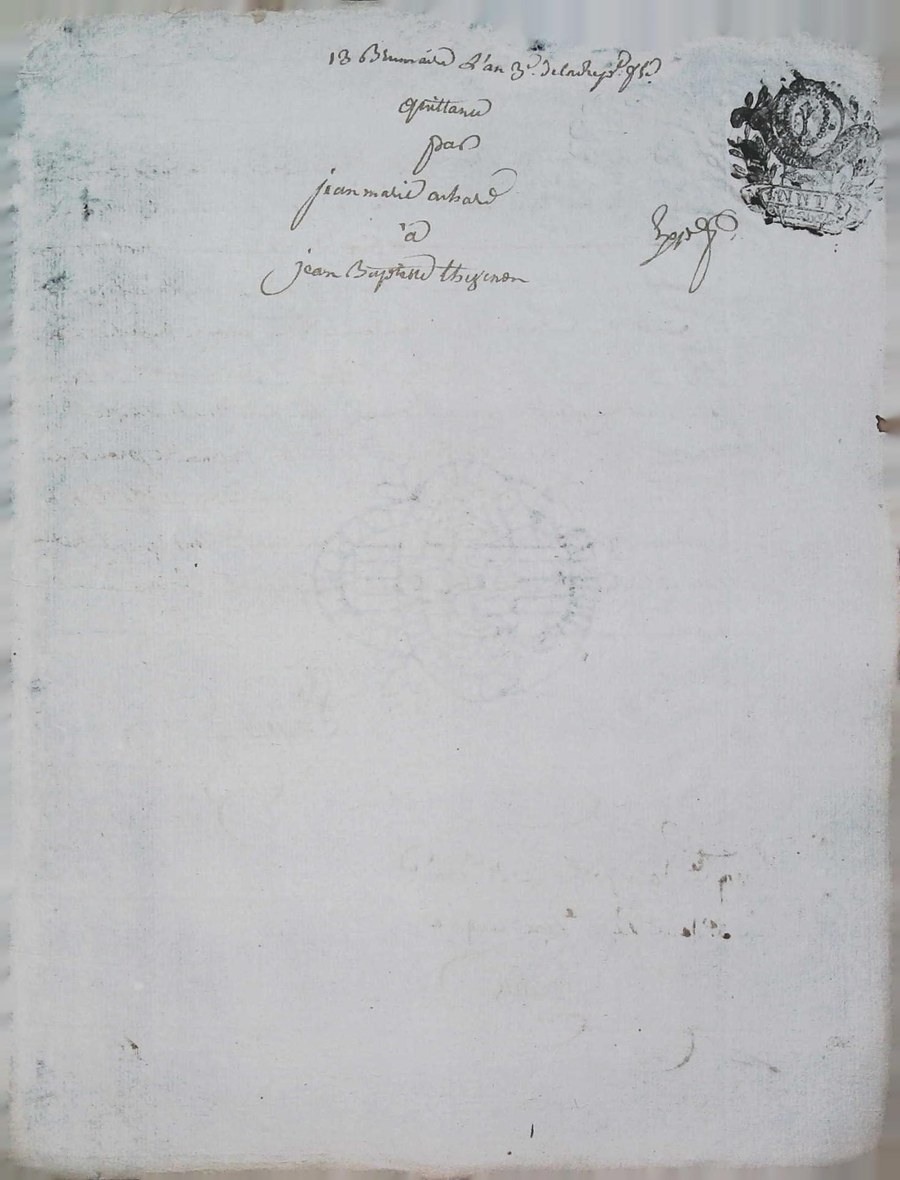 13 Brumaire L'an 3e. de la Rep. fse
quittance
par
jean marie achard
à
jean Baptiste thevenon